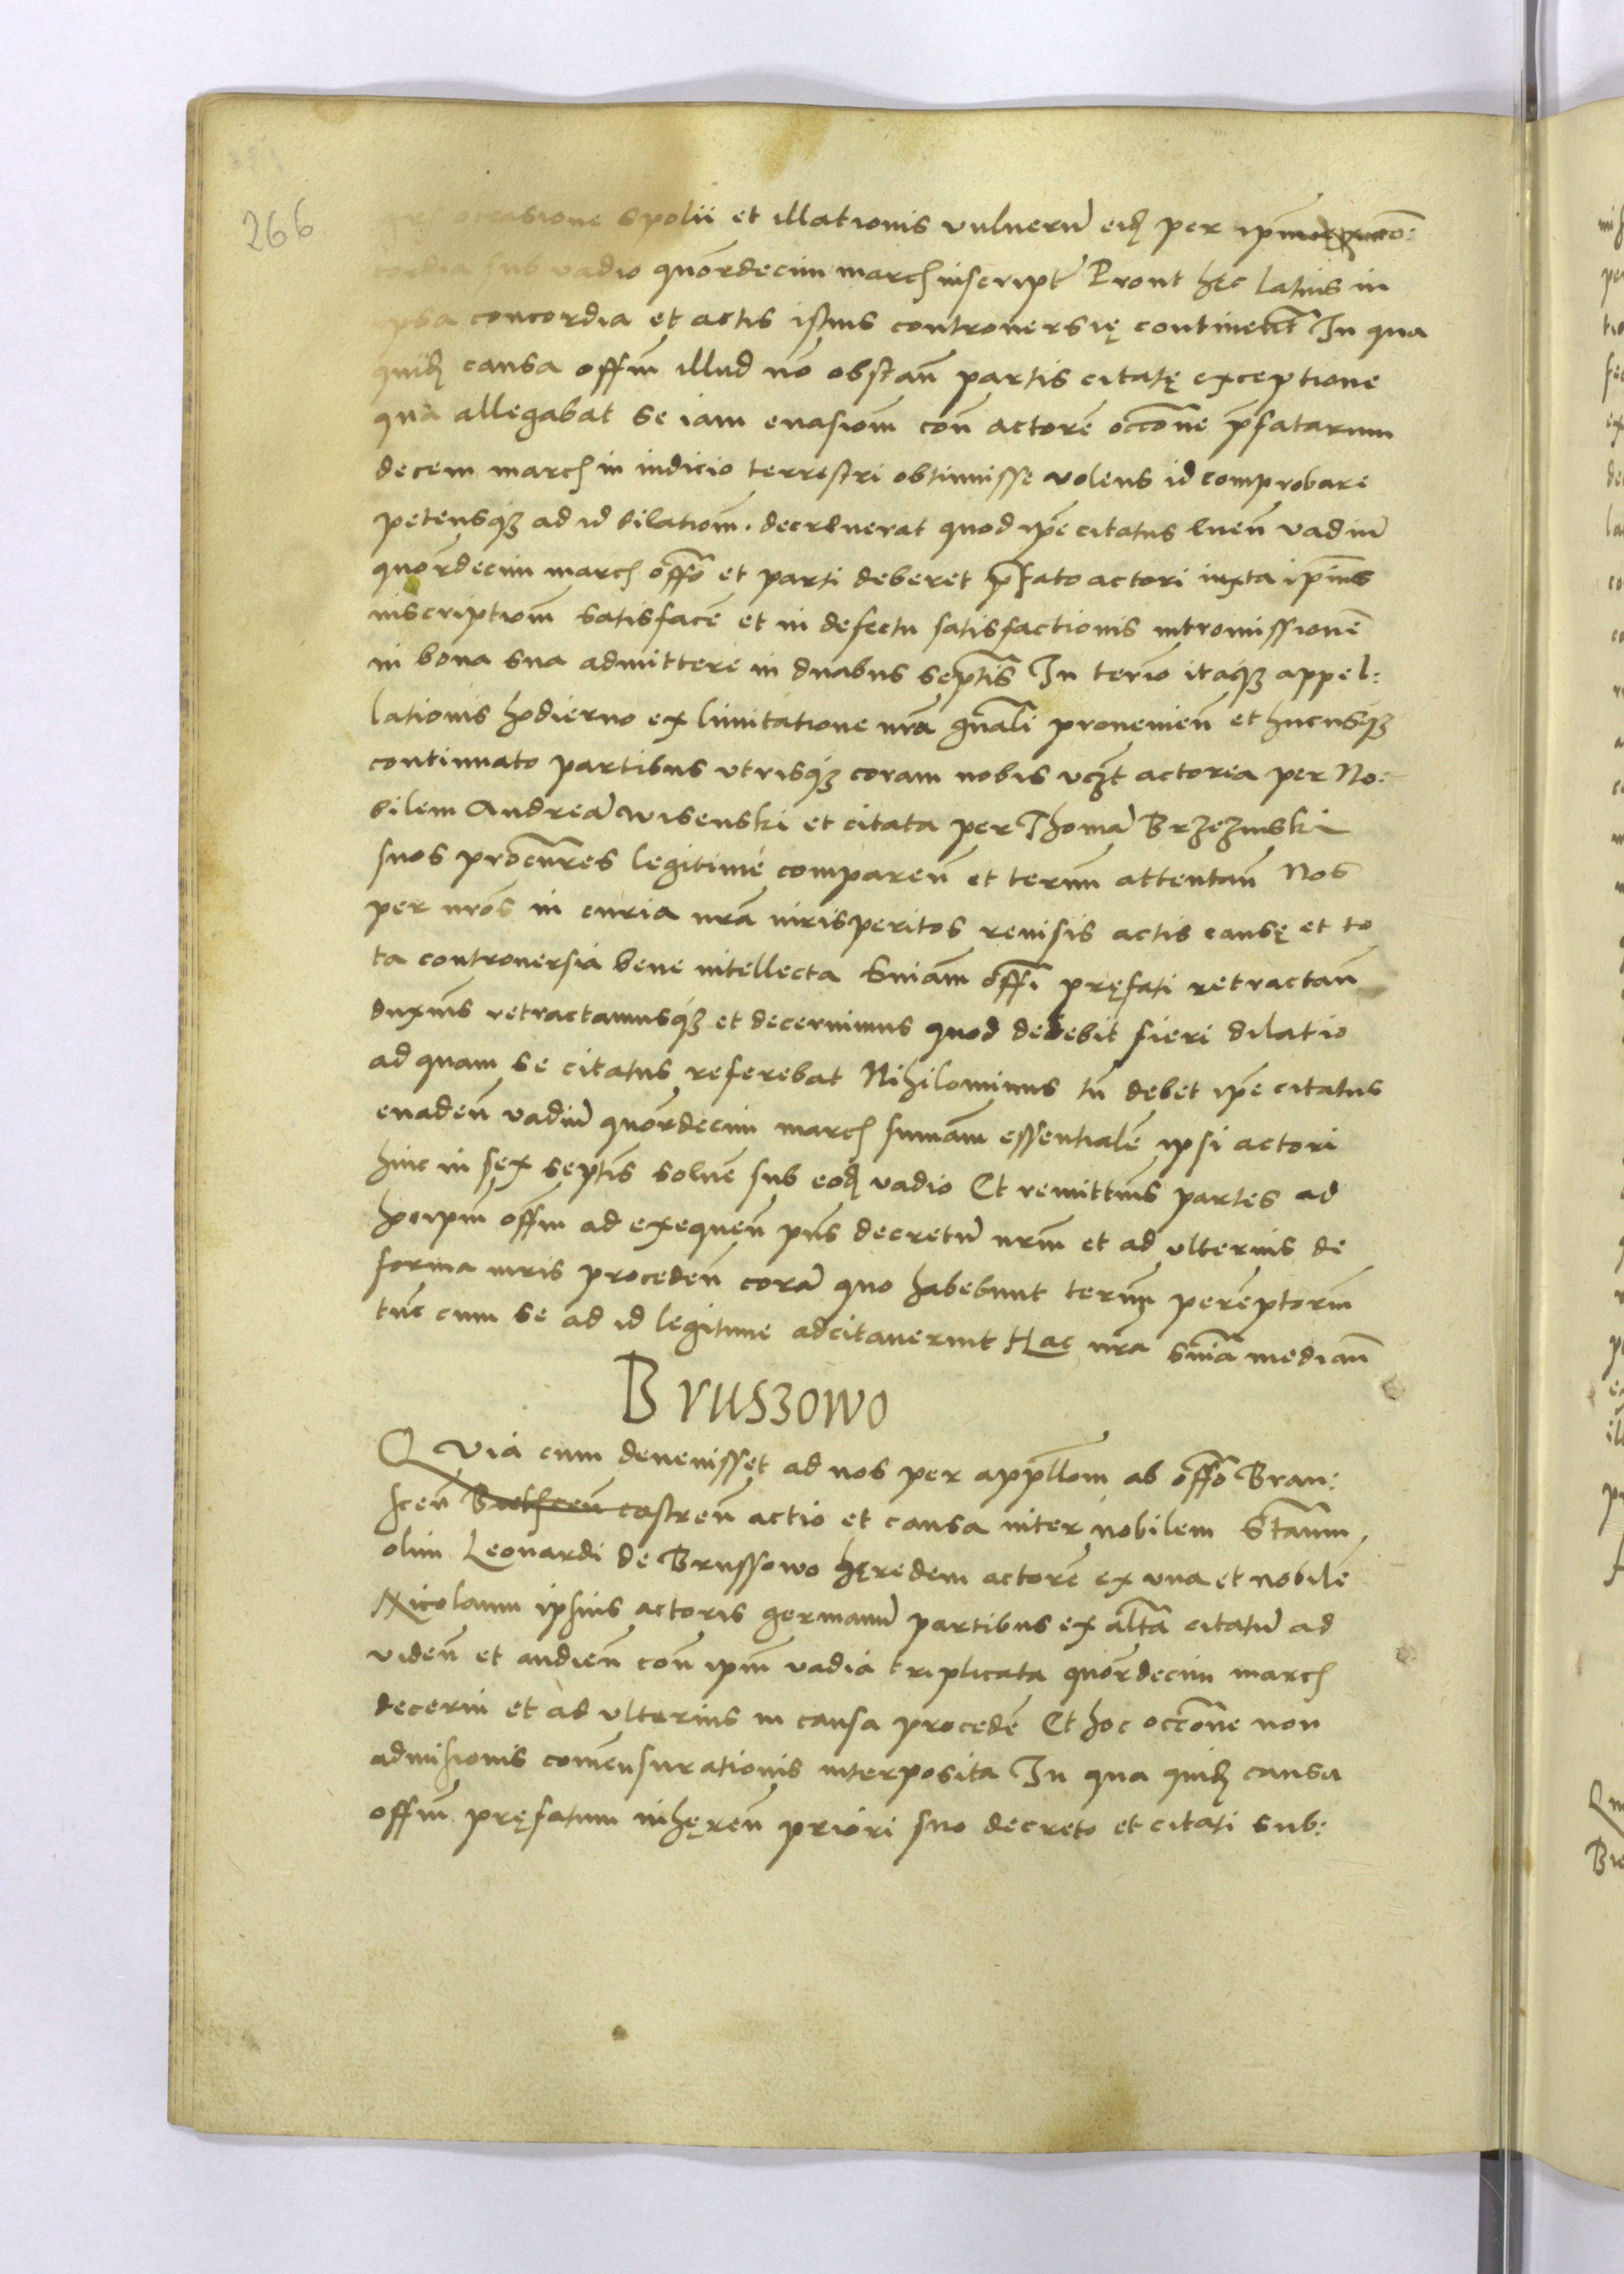 266
occasione spolii et illationis vulnerū eid per ipm̄ con:
cordia sub vadio quōrdecim march inscript Prout hęc latius in
ipsa concordia et actis istius controuersię continetur In qua
quid causa offm illud nō obstan̄ partis citatę exceptione
qua allegabat se iam euasiom̄ con̄ actorē occōne p̄fatarum
decem march in iudicio terrestri obtinuisse volens id comprobare
petensqʒ ad id dilatiom̄. decreuerat quod ip̄e citatus luen̄ vadiū
quōrdecim march offō et parti deberet p̄fato actori iuxta ip̄ius
inscriptiom̄ satisfacē et in defectu satisfactionis intromissionē
in bona sua admittere in duabus septīs In termīo itaqʒ appel:
lationis hodierno ex limitatione nr̄a gn̄ali prouenien̄ et hucusqʒ
continuato partibus vtrisqʒ coram nobis vczt actorea per No:
bilem Andreā Wisenski et citata per Thomā Brzezinski
suos procūres legitime comparen̄ et termn̄ attentan̄ Nos
per nr̄os in curia nr̄a iurisperitos reuisis actis causę et to
ta controuersia bene intellecta Sniam̄ offī pręfati retractan̄
duxim̄s retractamusqʒ et decernimus quod debebit fieri dilatio
ad quam se citatus referebat Nihilominus tn̄ debet ip̄e citatus
euaden̄ vadiū quōrdecim march sum̄am essentialē ipsi actori
hinc in sex septīs soluē sub eod vadio Et remittim̄s partes ad
hoc ip̄m offm ad exequen̄ pn̄s decretū nrm̄ et ad vlterius de
forma iuris proceden̄ corā quo habebunt termn̄ perēptorm̄
tūc cum se ad id legitime adcitauerint Hac nr̄a snīa median̄
Bruszowo
QVia cum deuenisset ad nos per appellom̄ ab offō Bran:
scen̄ castren̄ actio et causa inter nobilem Stanm̄
olim Leonardi de Brussowo hęredem actorē ex vna et nobilē
Nicolaum ipsius actoris germanū partibus ex altā citatū ad
viden̄ et audien̄ con̄ ip̄m vadia triplicata quōrdecim march
decerni et ad vlterius in causa procedē Et hoc occōne non
admissionis com̄ensurationis interposita In qua quid causa
offm̄ pręfatum inhęren̄ priori suo decreto et citati sub: